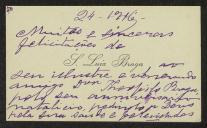 24-1916,-
Muitas e sinceras
felicitações de
S. Luiz Braga ao
seu illustre e venerando
amigo Dr. Theophilo Braga,
pelo seu anniversario
natalicio, pedindo a Deus
pela sua saude e felicidades